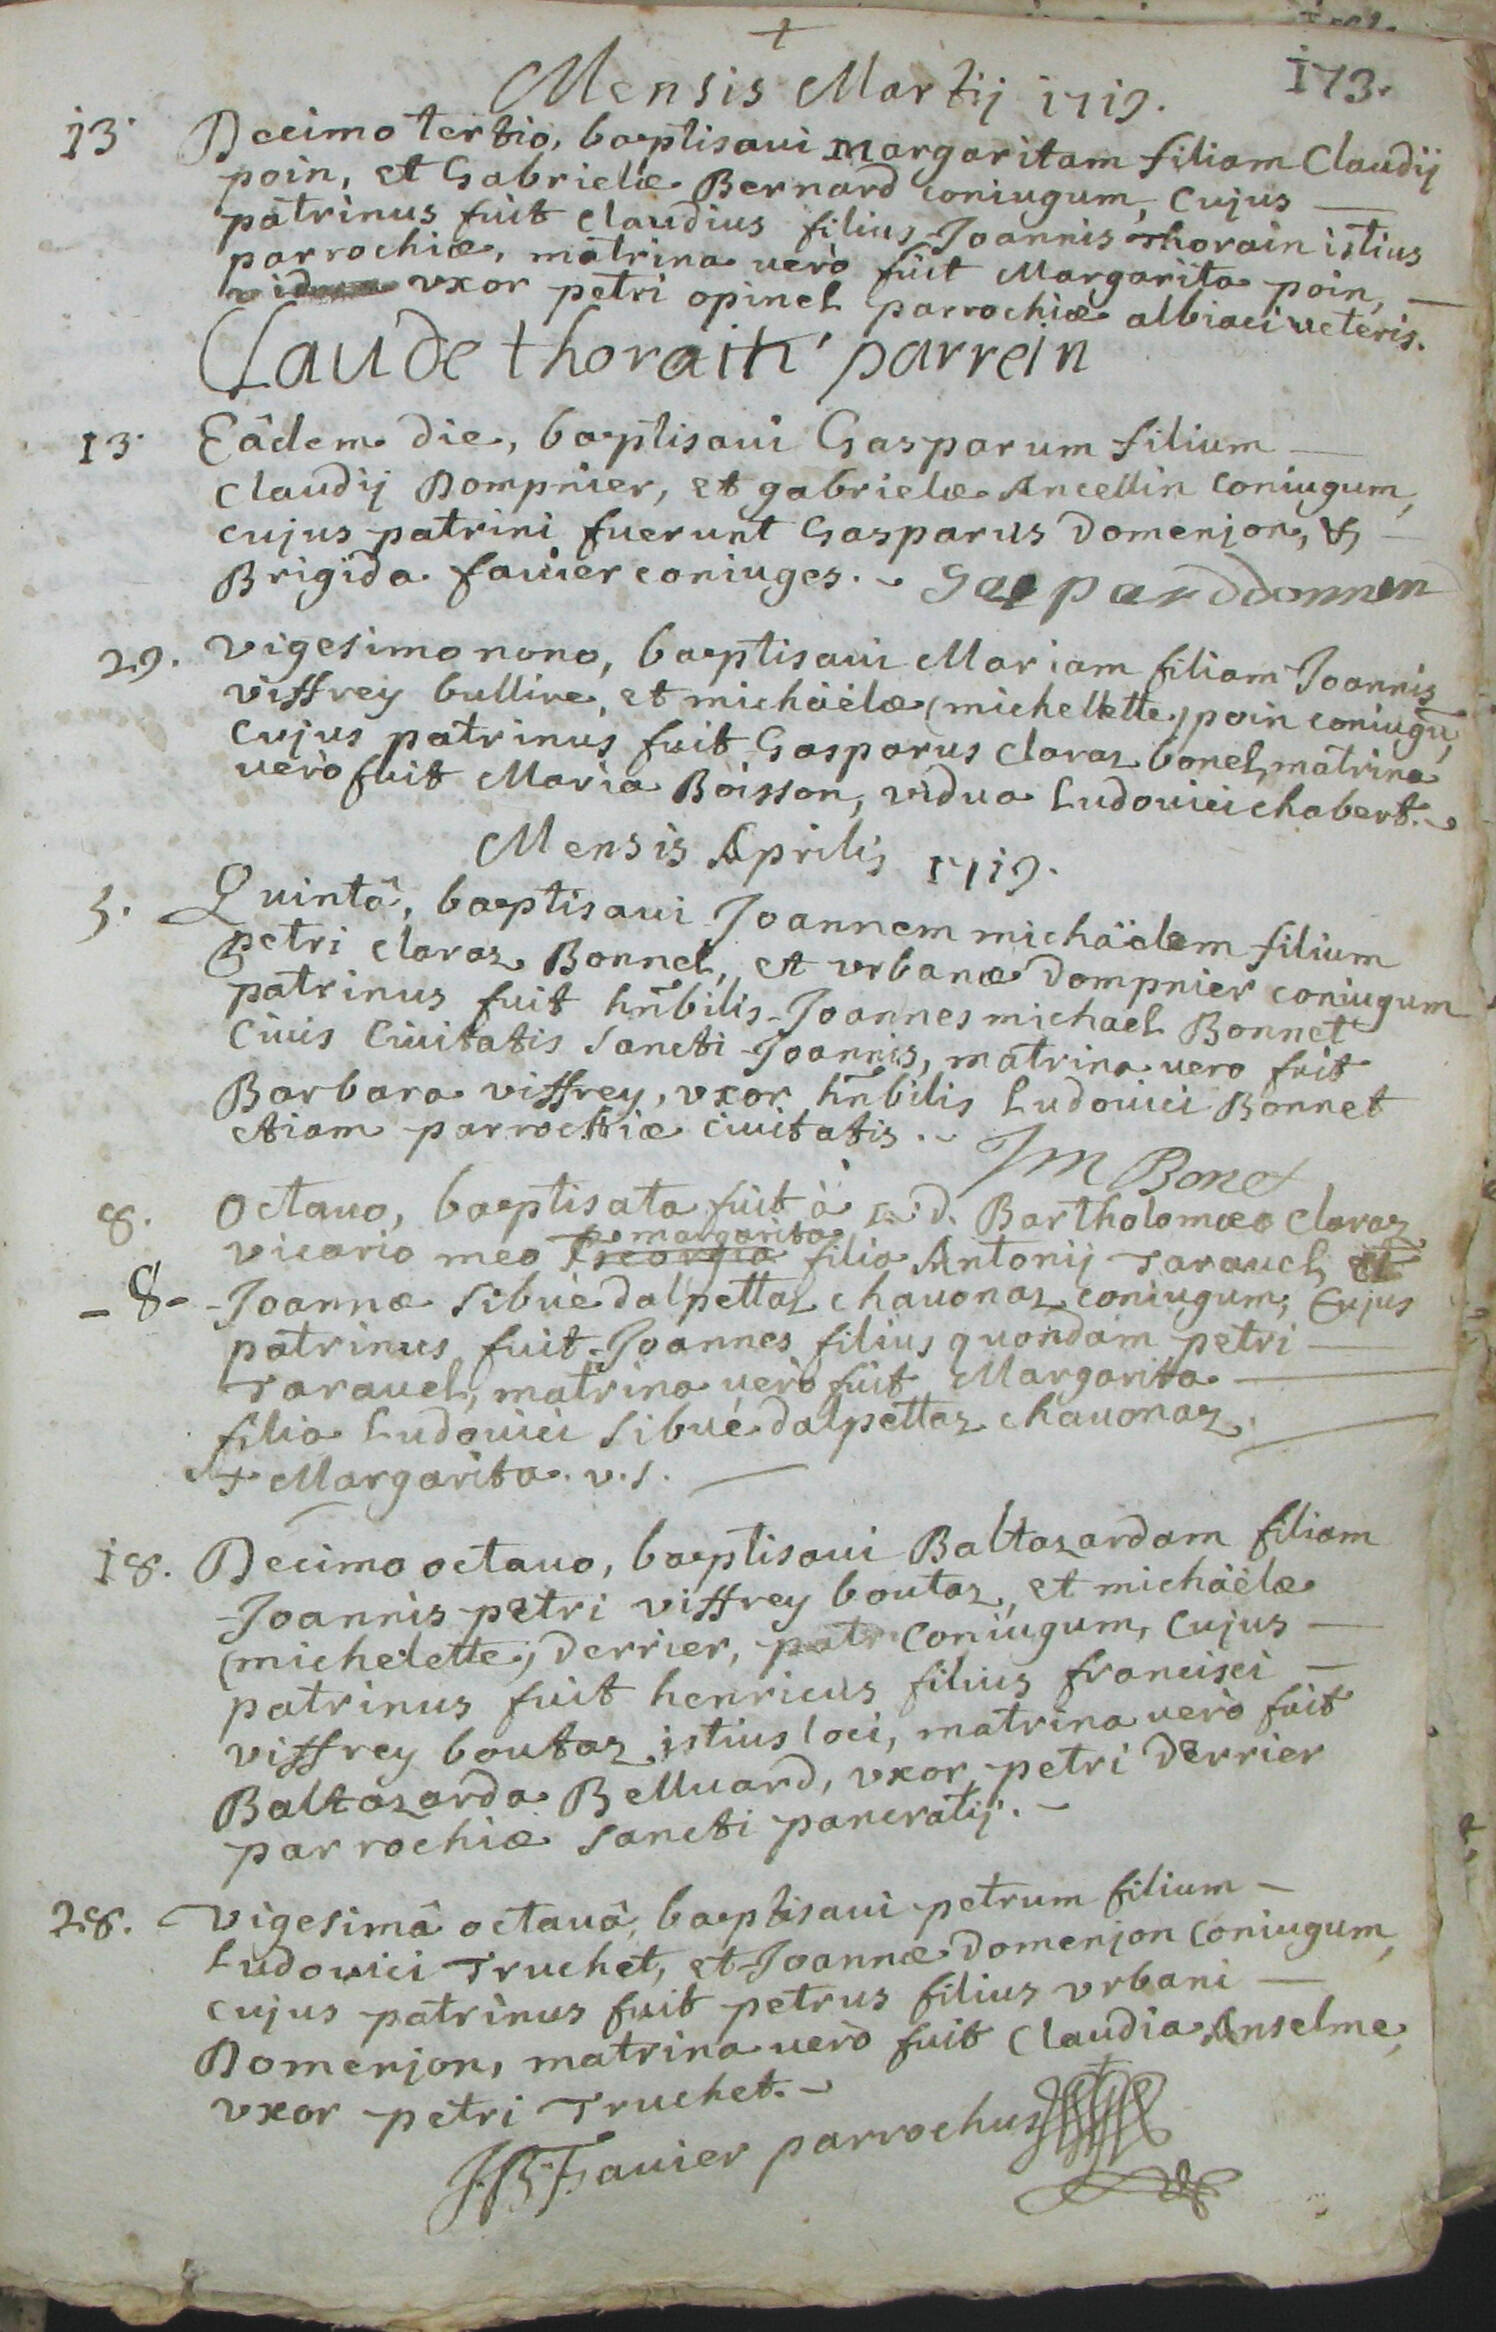 +
Mensis Martij 1719. 173.
13. Decimo tertio, baptisaui margaritam filiam Claudij
poin, et Gabrielæ Bernard coniugum, Cujus —
patrinus fuit claudius filius Joannis thorain istius
parrochiæ, matrina uerò fuit Margarita poin, —
uxor petri opinel parrochiæ albiaci ueteris.
Claude thorain parrein
13. Eâdem die, baptisaui Gasparum filium —
Claudij Dompnier, et gabrielæ Ancellin coniugum,
cujus patrini fuerunt Gasparus Domenjon, & —
Brigida fauier coniuges. Gaspardd
29. vigesimo nono, baptisaui Mariam filiam Joannis
viffrey bullire, et michäelæ (michellette) poin coniugū,
Cujus patrinus fuit Gasparus claraz bonel, matrina
uerò fuit Maria Boisson, vidua Ludouici chabert.
Mensis Aprilis 1719.
5. Quintâ, baptisaui Joannem michäelem filium
petri claraz Bonnel, et vrbanæ Dompnier coniugum
patrinus fuit hn̄bilis Joannes michael Bonnet
Ciuis Ciuitatis Sancti Joannis, matrina uero fuit
Barbara viffrey, vxor hn̄bilis Ludouici Bonnet
etiam parrochiæ ciuitatis.
JM Bonet
8. Octauo, baptisata fuit à r. d. Bartholomæo claraz
margarita
vicario meo Georgia filia Antonij Tarauel, et
-8- Joannæ Sibué dalpettaz chauonaz coniugum, Cujus
patrinus fuit Joannes filius quondam petri —
Tarauel, matrina uerò fuit Margarita —
filia Ludouici Sibué dalpettaz chauonaz.
+ Margarita. v. s. —
18. Decimo octauo, baptisaui Baltazardam filiam
Joannis petri viffrey boutaz, et michäelæ
(michelette) Derrier, patr coniugum, Cujus —
patrinus fuit henricus filius francisci —
viffrey boutaz istius loci, matrina uerò fuit
Baltazarda Belluard, vxor petri Derrier
parrochiæ Sancti pancratij. -
28. Vigesimâ octauâ, baptisaui petrum filium -
Ludouici Truchet, et Joannæ Domenjon coniugum,
cujus patrinus fuit petrus filius vrbani —
Domenjon, matrina uerò fuit Claudia Anselme,
vxor petri Truchet. -
JB Fauier parrochus